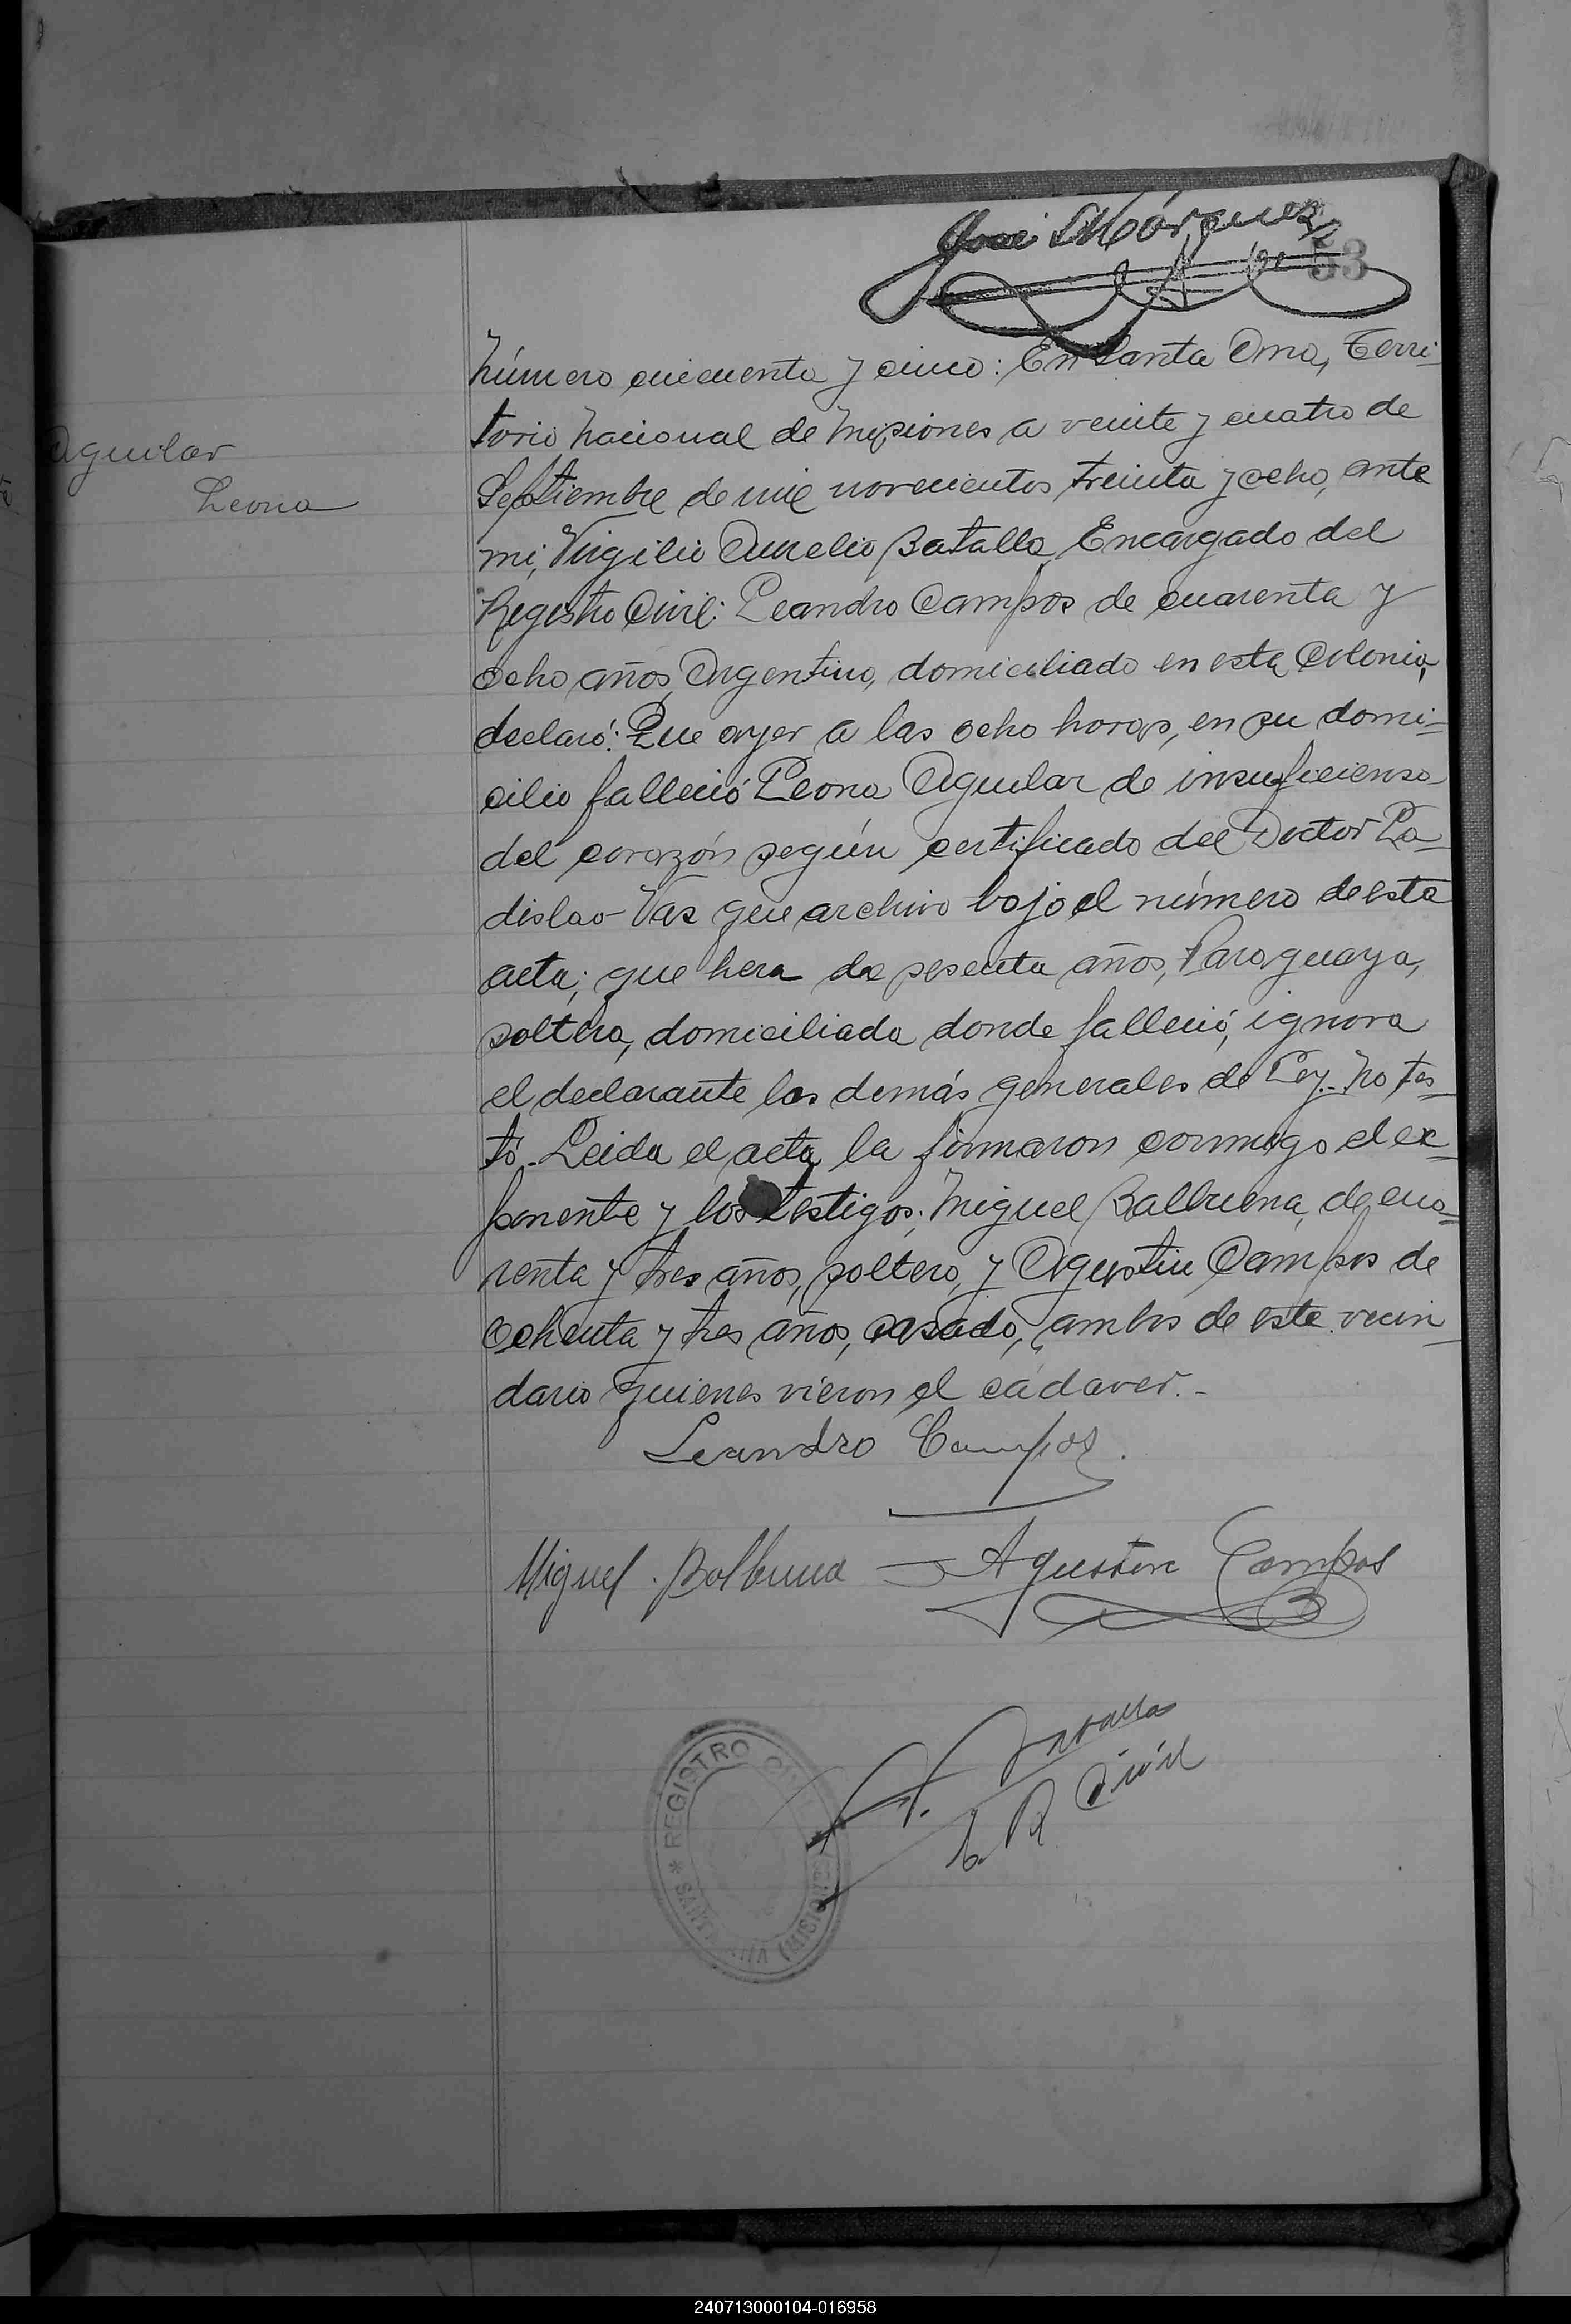 José Márquez
53
Número cincuenta y cinco: En Santa Ana, Terri-
torio Nacional de Misiones a veinte y cuatro de
Septiembre de mil novecientos treinta y ocho, ante
Aguilar
Leona
mi, Virgilio Aurelio Batalla Encargado del
Registro Civil: Leandro Campos de cuarenta y
ocho años, Argentino, domiciliado en esta Colonia,
declaró: Que ayer a las ocho horas, en su domi-
cilio falleció Leona Aguilar de insuficiensa
del corazón según certificado del Doctor La-
dislao Vas que archivo bajo el número de esta
acta; que hera de sesenta años, Paraguaya,
soltera, domiciliada donde falleció, ignora
el declarante las demás generales de Ley. No tes-
tó. Leida el acta la firmaron conmigo el ex-
ponente y los testigos: Miguel Balbuena, de cua-
renta y tres años, soltero, y Agustin Campos de
ochenta y tres años, casado, ambos de este vecin-
dario quienes vieron el cádaver.-
Leandro Campos.
Miguel. Balbuena Agustin Campos
V. Batalla
E. R Civil
* REGISTRO CIVIL * SANTA ANA (MISIONES)
240713000104-016958